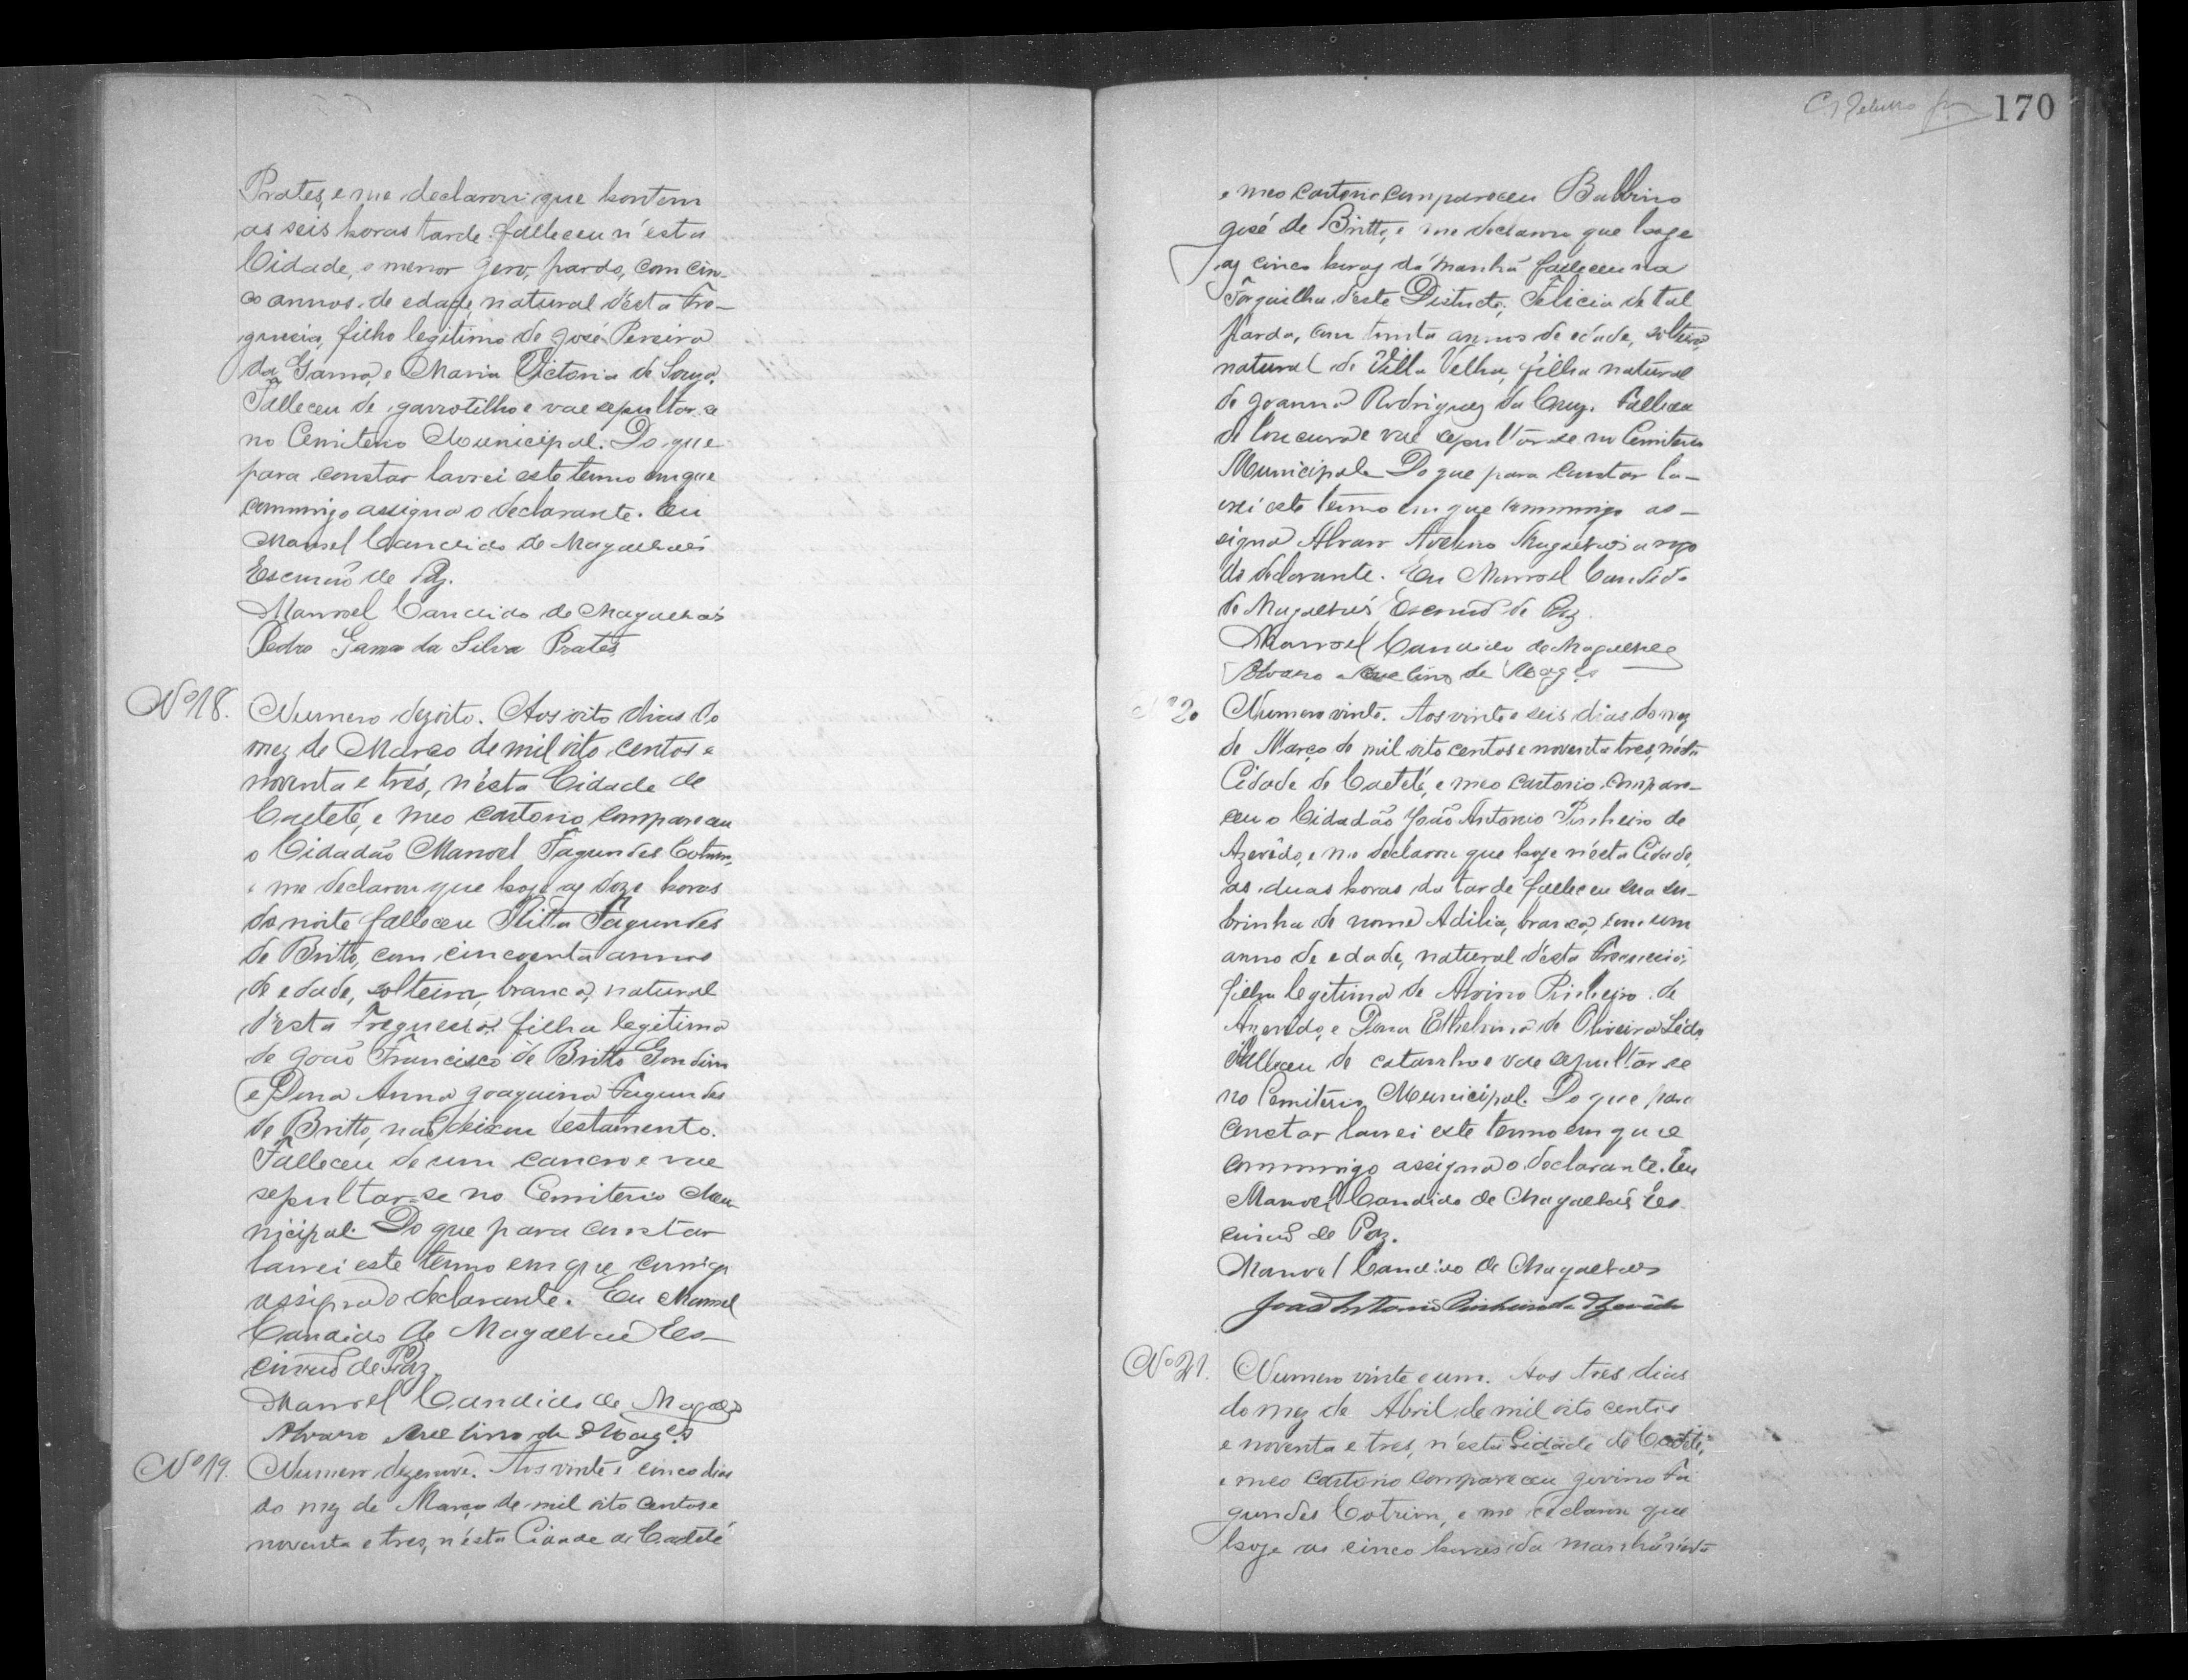 Prates, e me declarou que hontem
as seis horas tarde falleceu n'esta
Cidade, o menor Gero, pardo, com cin-
co annos de edade, natural d'esta Fre-
guesia, filho legitimo de José Pereira
da Gama, e Maria Victoria de Souza.
Falleceu de garrotilho e vae sepultar-se
no Cemiterio Municipal. Do que
para constar lavrei este termo em que
commigo assigna o declarante. Eu
Manoel Candido de Magalhães
Escrivão de Paz.
Manoel Candido de Magalhães
Pedro Gama da Silva Prates
Nº 18. Numero dezoito. Aos oito dias do
mez de Março de mil oito centos e
noventa e três, n'ésta Cidade de
Caeteté, e meo cartorio compareceu
o Cidadão Manoel Fagundes Cotrim,
e me declarou que hoje as doze horas
da noite falleceu Ritta Fagundes
de Britto, com cincoenta annos
de edade, solteira, branca, natural
d'esta Freguesia, filha legitima
de João Francisco de Britto Gondim
e Dona Anna Joaquina Fagundes
de Britto, não deixou testamento.
Falleceu de um cancro e vae
sepultar-se no Cemiterio Mu-
nicipal. Do que para constar
lavrei este termo em que comigo
assigna o declarante. Eu Manoel
Candido de Magalhães Es-
crivão de Paz.
Manoel Candido de Magães
Alvaro Avelino de Magães
Nº 19. Numero dezenove. Aos vinte e cinco dias
do mez de Março de mil oito centos e
noventa e tres, n'ésta Cidade de Caeteté
170
e meo cartorio compareceu Balbino
José de Britto, e me declarou que hoje
as cinco horas da manhã falleceu na
Forquilha d'este Districto, Felicia de tal
parda, com trinta annos de edade, solteira,
natural de Villa Velha, filha natural
de Joanna Rodrigues da Cruz. Falleceu
de loucura e vae sepultar-se no Cemiterio
Municipal. Do que para constar la-
vrei este termo em que commigo as-
signa Alvaro Avelino Magalhães a rogo
do declarante. Eu Manoel Candido
de Magalhães Escrivão de Paz.
Manoel Candido de Magalhães
Alvaro Avelino de Magães
Nº 20 Numero vinte. Aos vinte e seis dias do mez
de Março de mil oito centos e noventa tres, n'ésta
Cidade de Caeteté, e meo cartorio compare-
ceu o Cidadão João Antonio Pinheiro de
Azevêdo, e me declarou que hoje n'ésta Cidade,
as duas horas da tarde falleceu sua su-
brinha de nome Adilia, branca, com um
anno de edade, natural d'ésta Freguesia,
filha legitima de Alvino Pinheiro de
Azevedo, e Dona Ethelvina de Oliveira Lédo.
Falleceu de catarrho e vae sepultar-se
no Cemiterio Municipal. Do que para
constar lavrei este termo em que
commigo assigna o declarante. Eu
Manoel Candido de Magalhães Es-
crivão de Paz.
Manoel Candido de Magalhães
João Antonio Pinheiro de Azevêdo
Nº 21. Numero vinte e um. Aos tres dias
do mez de Abril de mil oito centos
e noventa e tres, n'ésta Cidade de Caeteté,
e meo cartorio compareceu Jovino Fa
gundes Cotrim, e me declarou que
hoje as cinco horas da manhã n'ésta